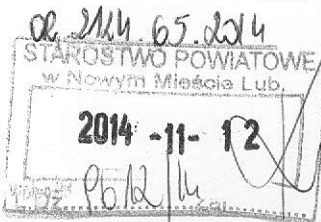 OR.2124.65.2014
STAROSTWO POWIATOWE
w Nowym Mieście Lub.
2014 -11- 12
zał.